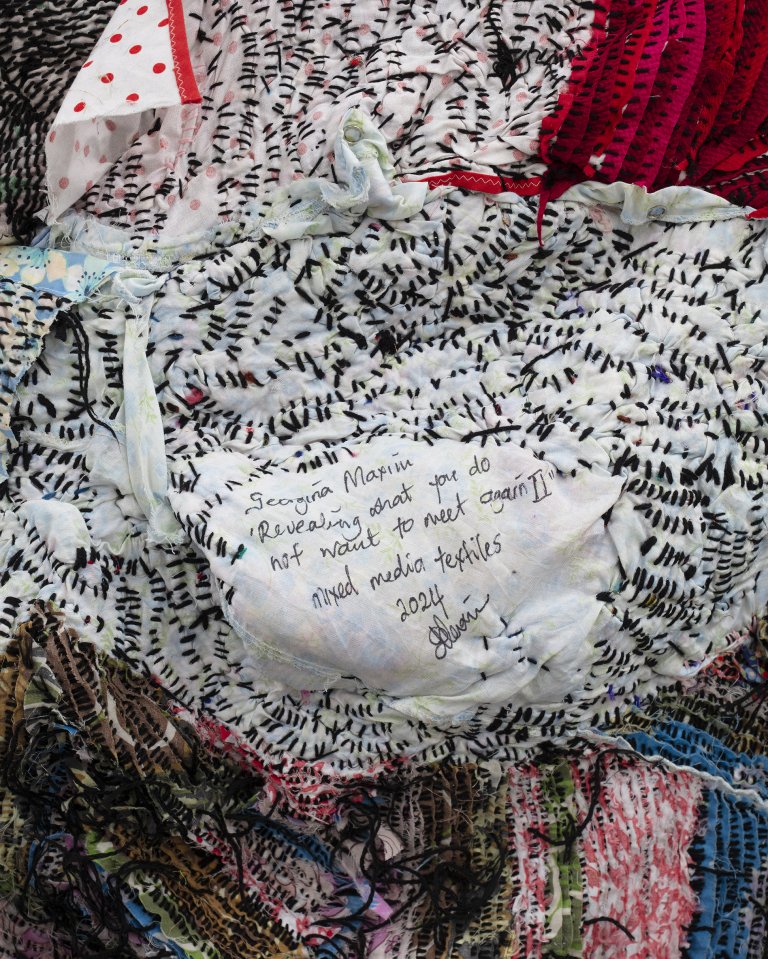 Georgina Maxim
"Revealing what you do
not want to meet again II"
mixed media textiles
2024